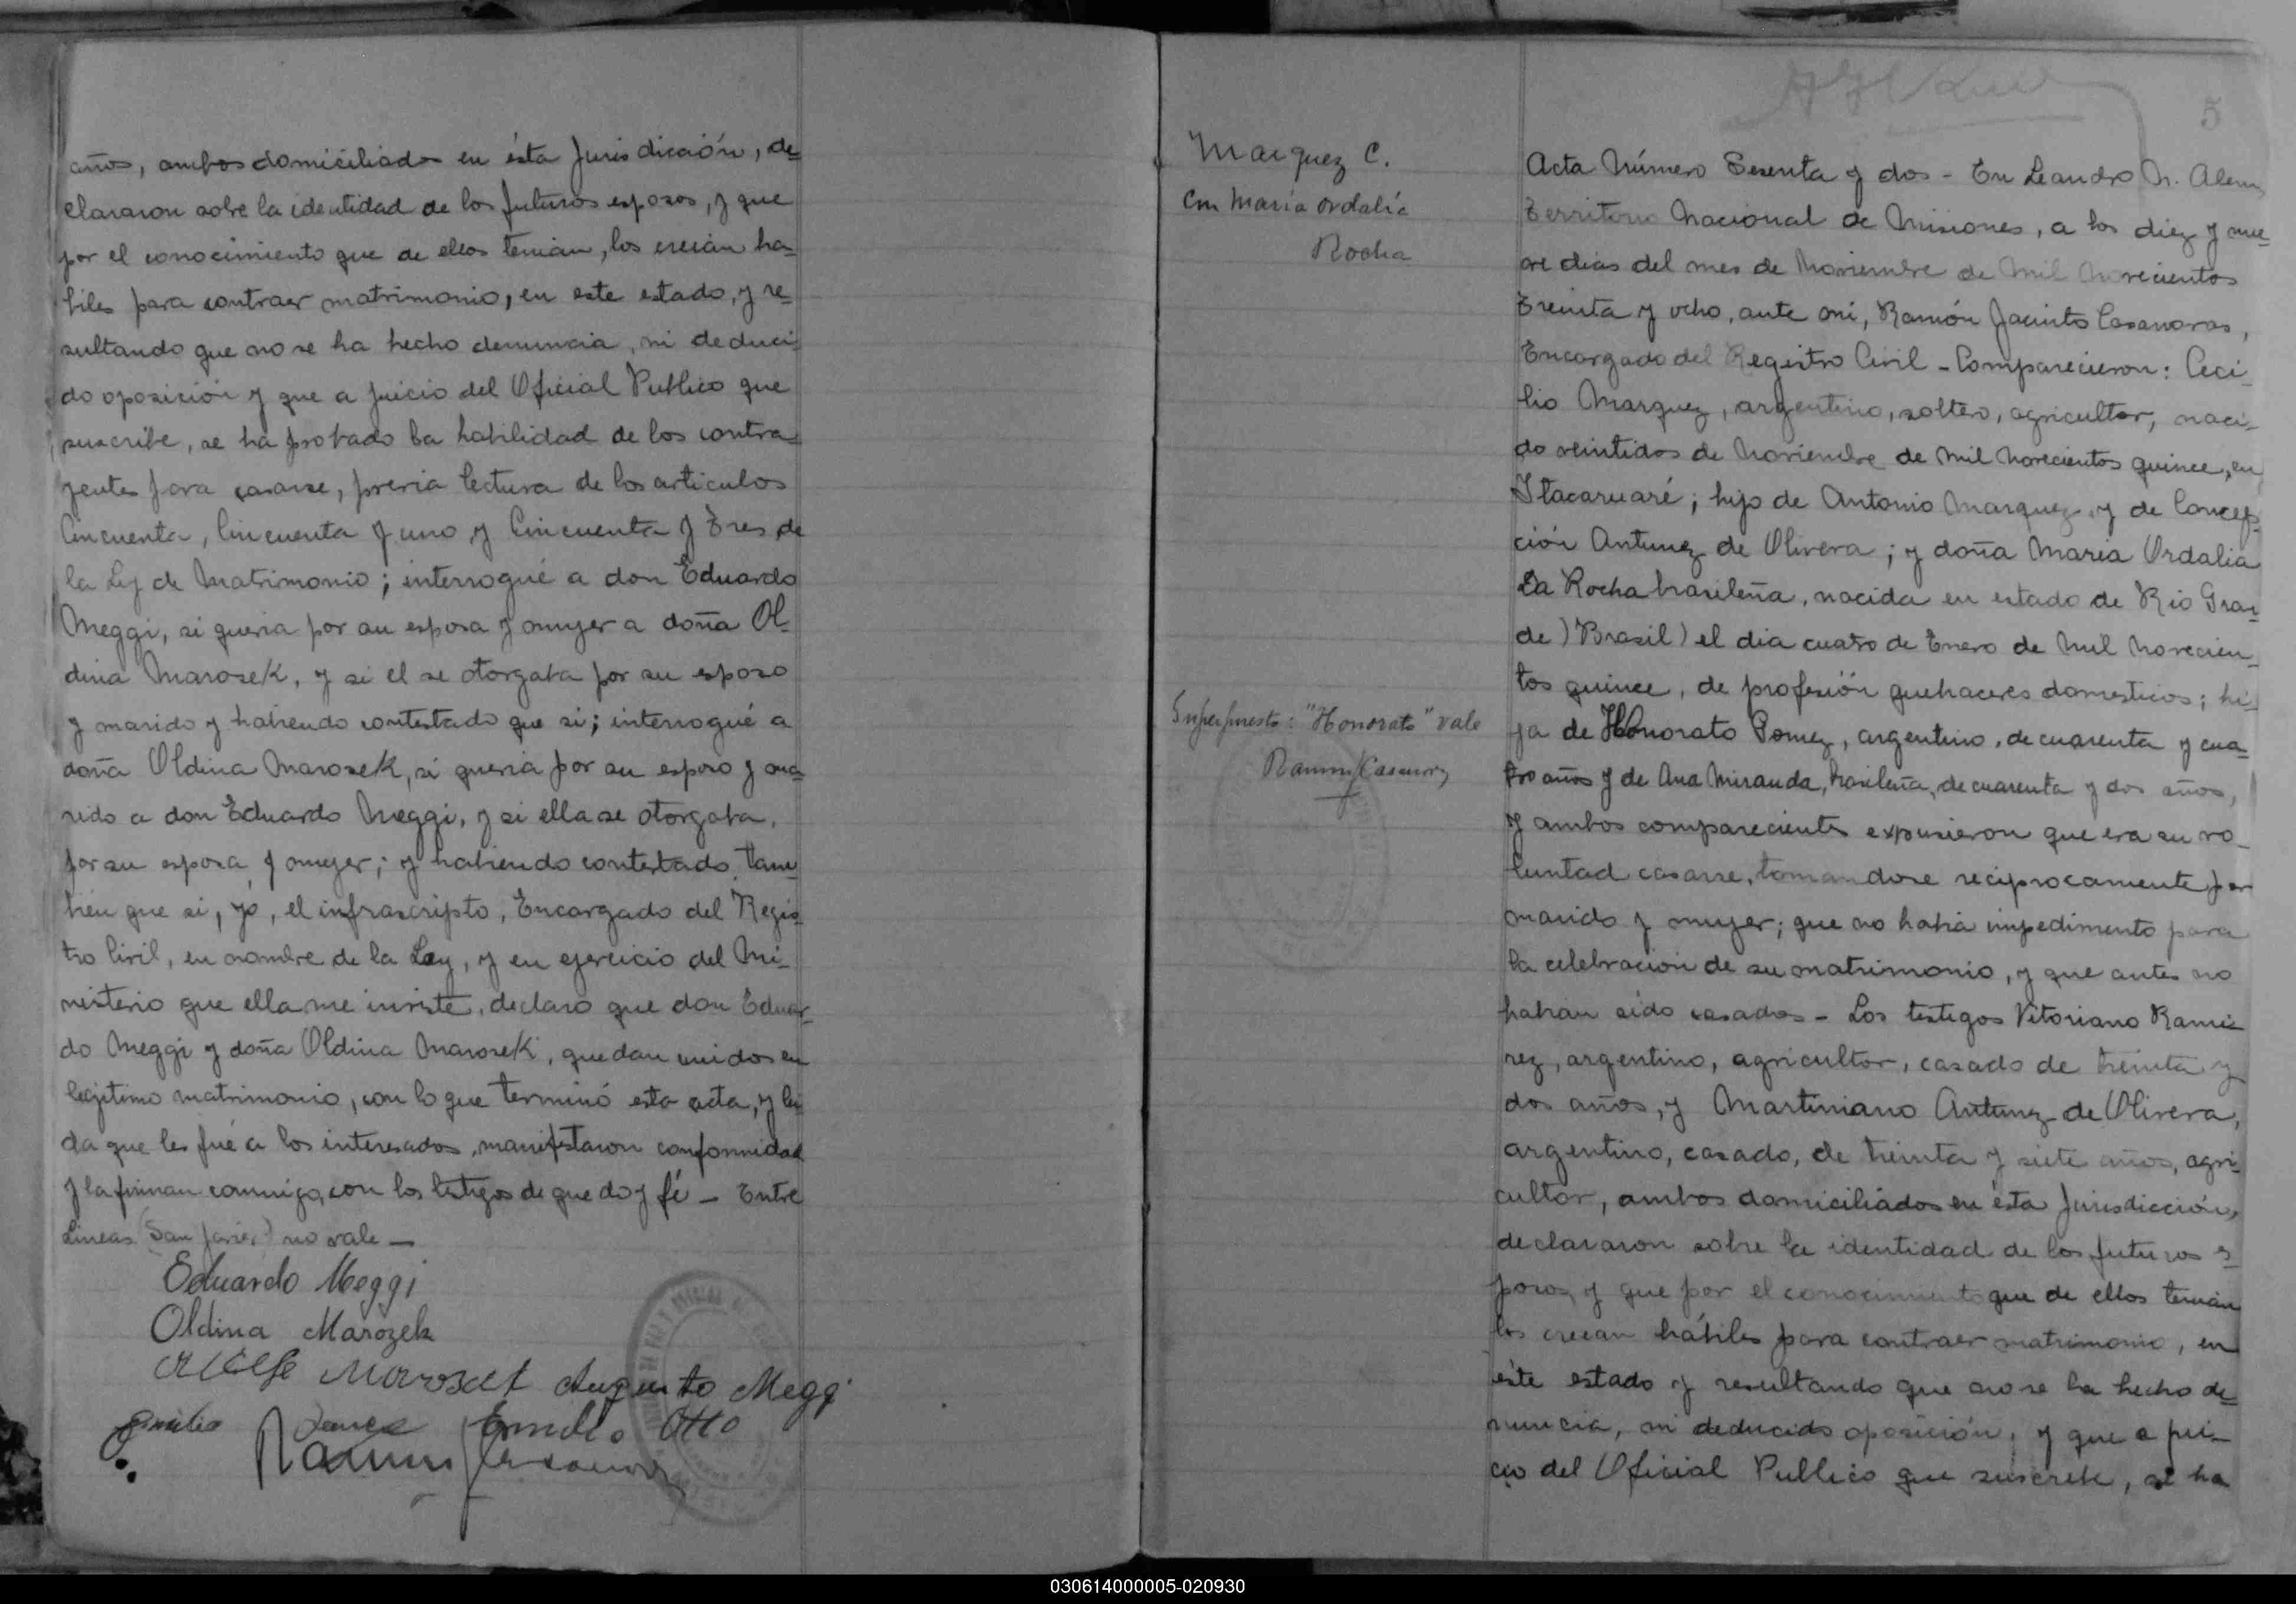 años, ambos domiciliados en ésta Jurisdicción, de=
clararon sobre la identidad de los futuros esposos, y que
por el conocimiento que de ellos tenian, los creian ha=
biles para contraer matrimonio, en este estado, y re=
sultando que no se ha hecho denuncia, ni deduci=
do oposición y que a juicio del Oficial Publico que
suscribe, se ha probado la habilidad de los contra=
yentes para casarse, previa lectura de los articulos
Cincuenta, Cincuenta y uno y Cincuenta y Tres de
la Ley de Matrimonio; interrogué a don Eduardo
Meggi, si queria por su esposa y mujer a doña Ol=
dina Marosek, y si el se otorgaba por su esposo
y marido y habiendo contestado que si; interrogué a
doña Oldina Marosek, si queria por su esposo y ma=
rido a don Eduardo Meggi, y si ella se otorgaba,
por su esposa y mujer; y habiendo contestado, tam
bien que si, yo, el infrascripto, Encargado del Regis=
tro Civil, en nombre de la Ley, y en ejercicio del Mi-
nisterio que ella me inviste, declaro que don Eduar-
do Meggi y doña Oldina Marosek, quedan unidos en
legitimo matrimonio, con lo que terminó esta acta, y lei
da que les fué a los interesados, manifstaron conformidad
y la firman conmigo, con los testigos de que doy fé - Entre
Lineas (San Javier) no vale -
Eduardo Meggi
Oldina Marozek
Marosek Augusto Meggi
Emilio Emilio Otto
Ramon J Casanovas
Marquez C.
Con María Ordalía
Rocha
Superpuesto: "Honorato" vale
Ramon J Casanovas
5
Acta Número Sesenta y dos - En Leandro N. Alem,
Territorio Nacional de Misiones, a los diez y nue=
ve dias del mes de Noviembre de Mil Novecientos
Treinta y ocho, ante mi, Ramón Jacinto Casanovas,
Encargado del Registro Civil - Comparecieron: Ceci-
lio Marquez, argentino, soltero, agricultor, naci-
do veintidos de Noviembre de Mil Novecientos quince, en
Itacaruaré; hijo de Antonio Marquez, y de Concep=
ción Antunez de Olivera; y doña Maria Ordalia
Da Rocha brasileña, nacida en estado de Rio Gran
de )Brasil) el dia cuatro de Enero de Mil Novecien-
tos quince, de profesión quehaceres domesticos; hi=
ja de Honorato Gomez, argentino, de cuarenta y cua=
tro años y de Ana Miranda, brasileña, de cuarenta y dos años,
y ambos comparecientes expusieron que era su vo-
luntad casarse, tomandose reciprocamente por
marido y mujer; que no habia impedimento para
la celebracion de su matrimonio, y que antes no
habian sido casados - Los testigos Vitoriano Rami=
rez, argentino, agricultor, casado de treinta y
dos años, y Martiniano Antunez de Olivera,
argentino, casado, de treinta y siete años, agri-
cultor, ambos domiciliados en ésta Jurisdicción,
declararon sobre la identidad de los futuros es=
posos, y que por el conocimiento que de ellos tenian
los creean hábiles para contraer matrimonio, en
éste estado y resultando que no se ha hecho de=
nuncia, ni deducido oposición, y que a jui-
cio del Oficial Publico que suscribe, se ha
030614000005-020930